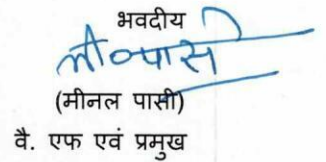 भवदीय
मी०पासी
(मीनल पासी)
वै. एफ एवं प्रमुख